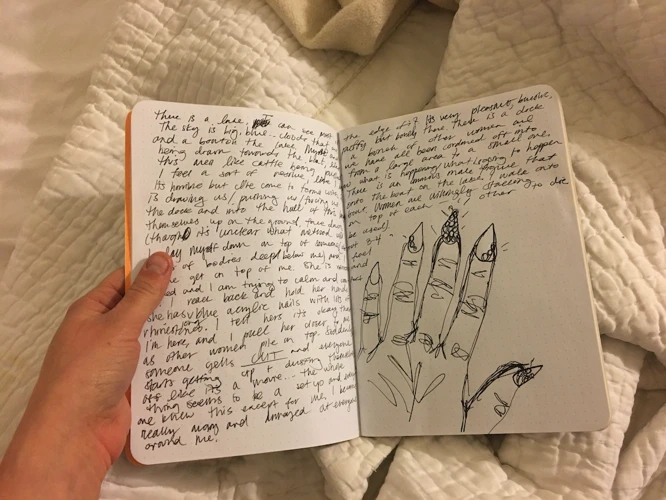 there is a lake. I can see most
The sky is big, blue.. clouds that
and a boat on the lake. Myself
being drawn towards the boat,
this men like cattle being
I feel a sort of passive, like I
its horrible but come to terms with
is drawing us / pushing us / forcing us
the dock and into the hull of this
themselves up on the ground, three deep
(though it's unclear what method will
lay myself down on top of someone
of bodies deep below me) and
one get on top of me. She is
ed and I am trying to calm and
I reach back and hold her hand
she has blue acrylic nails with lots of
rhinestones. I tell hers it's okay that
I'm here, and I pull her closer to me
as other women pile on top. Suddenly
someone yells CUT and everyone
starts getting up + dusting themselves
off like its a movie... the whole
thing seems to be a set up and every
one knew this except for me. I became
really angry and enraged at everyone
around me.
the edge of it. Its very pleasant, bucolic,
puffy but barely there. There is a dock
a bunch of other women are
we have all been off into
from a large area to a small one.
what is happening/what is going to happen
There is an ominous male figure that
onto the boat on the latch, walk onto
women are willingly stacking to die
on top of each other
be used).
3-4
feel
and